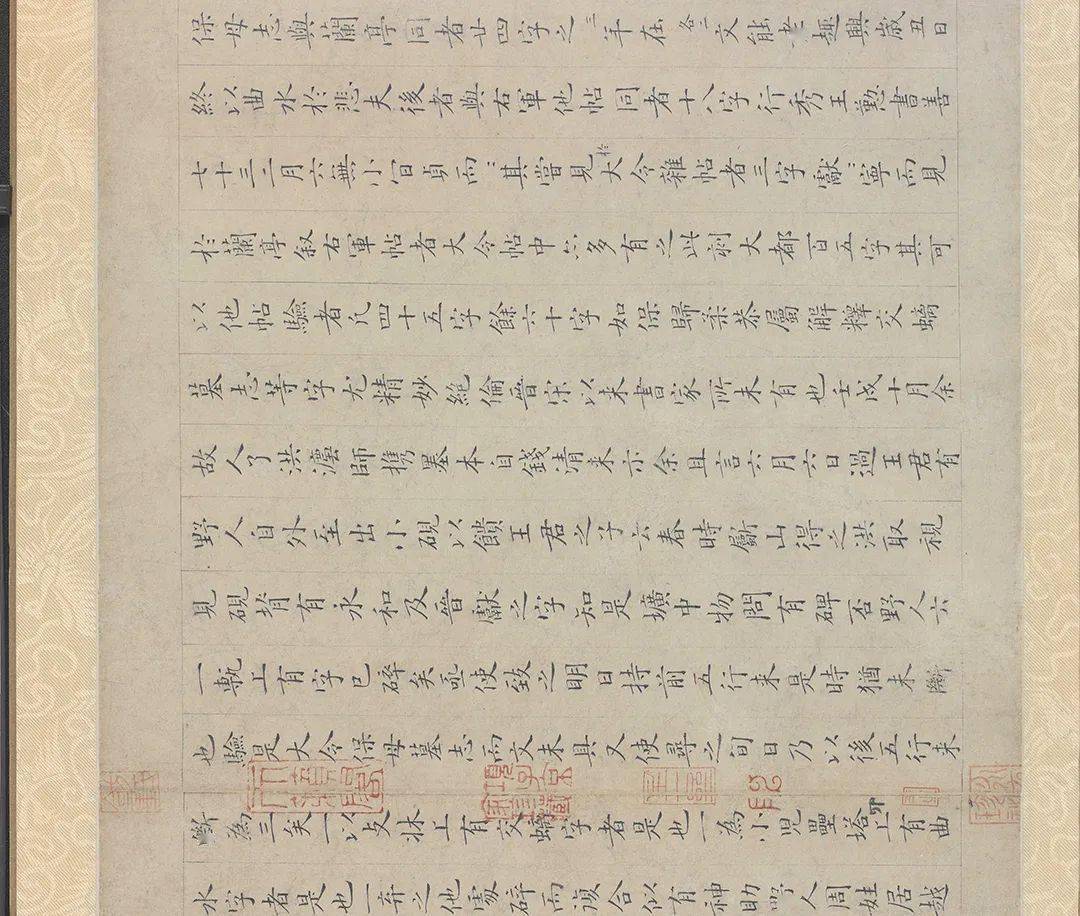 保母志與蘭亭同者廿四字之三年在各二文能老趣興歲丑日
終以曲水於悲夫後者與右軍他帖同者十八字行秀王懃書善
七十三二月六無小宜貞而三其嘗見於大令雜帖者三字獻三寧而見
於蘭亭叙右軍帖者大令帖中亦多有之此刻大都一百五字其可
以他帖驗者凡四十五字餘六十字如保歸柔恭屬解釋交螭
墓志等字尤精妙絕倫晉宋以来書家所未有也壬戌十月余
故人了洪師攜墨本自錢清来示余且言六月六日過王君有
野人自外至出小硯以饋王君之子云春時斸山得之洪取視
見硯背有永和及晉獻之字知是壙中物問有碑否野人云
一甎上有字已碎矣亟使致之明日持前五行来是時猶未斷
也驗是大令保母墓志而文未具又使尋之旬日乃以後五行来
斷為三矣一以支牀上有交螭字者是也一為小兒壘塔上有曲
水字者是也一弃之他處碎而復合似有神助野人周姓居越